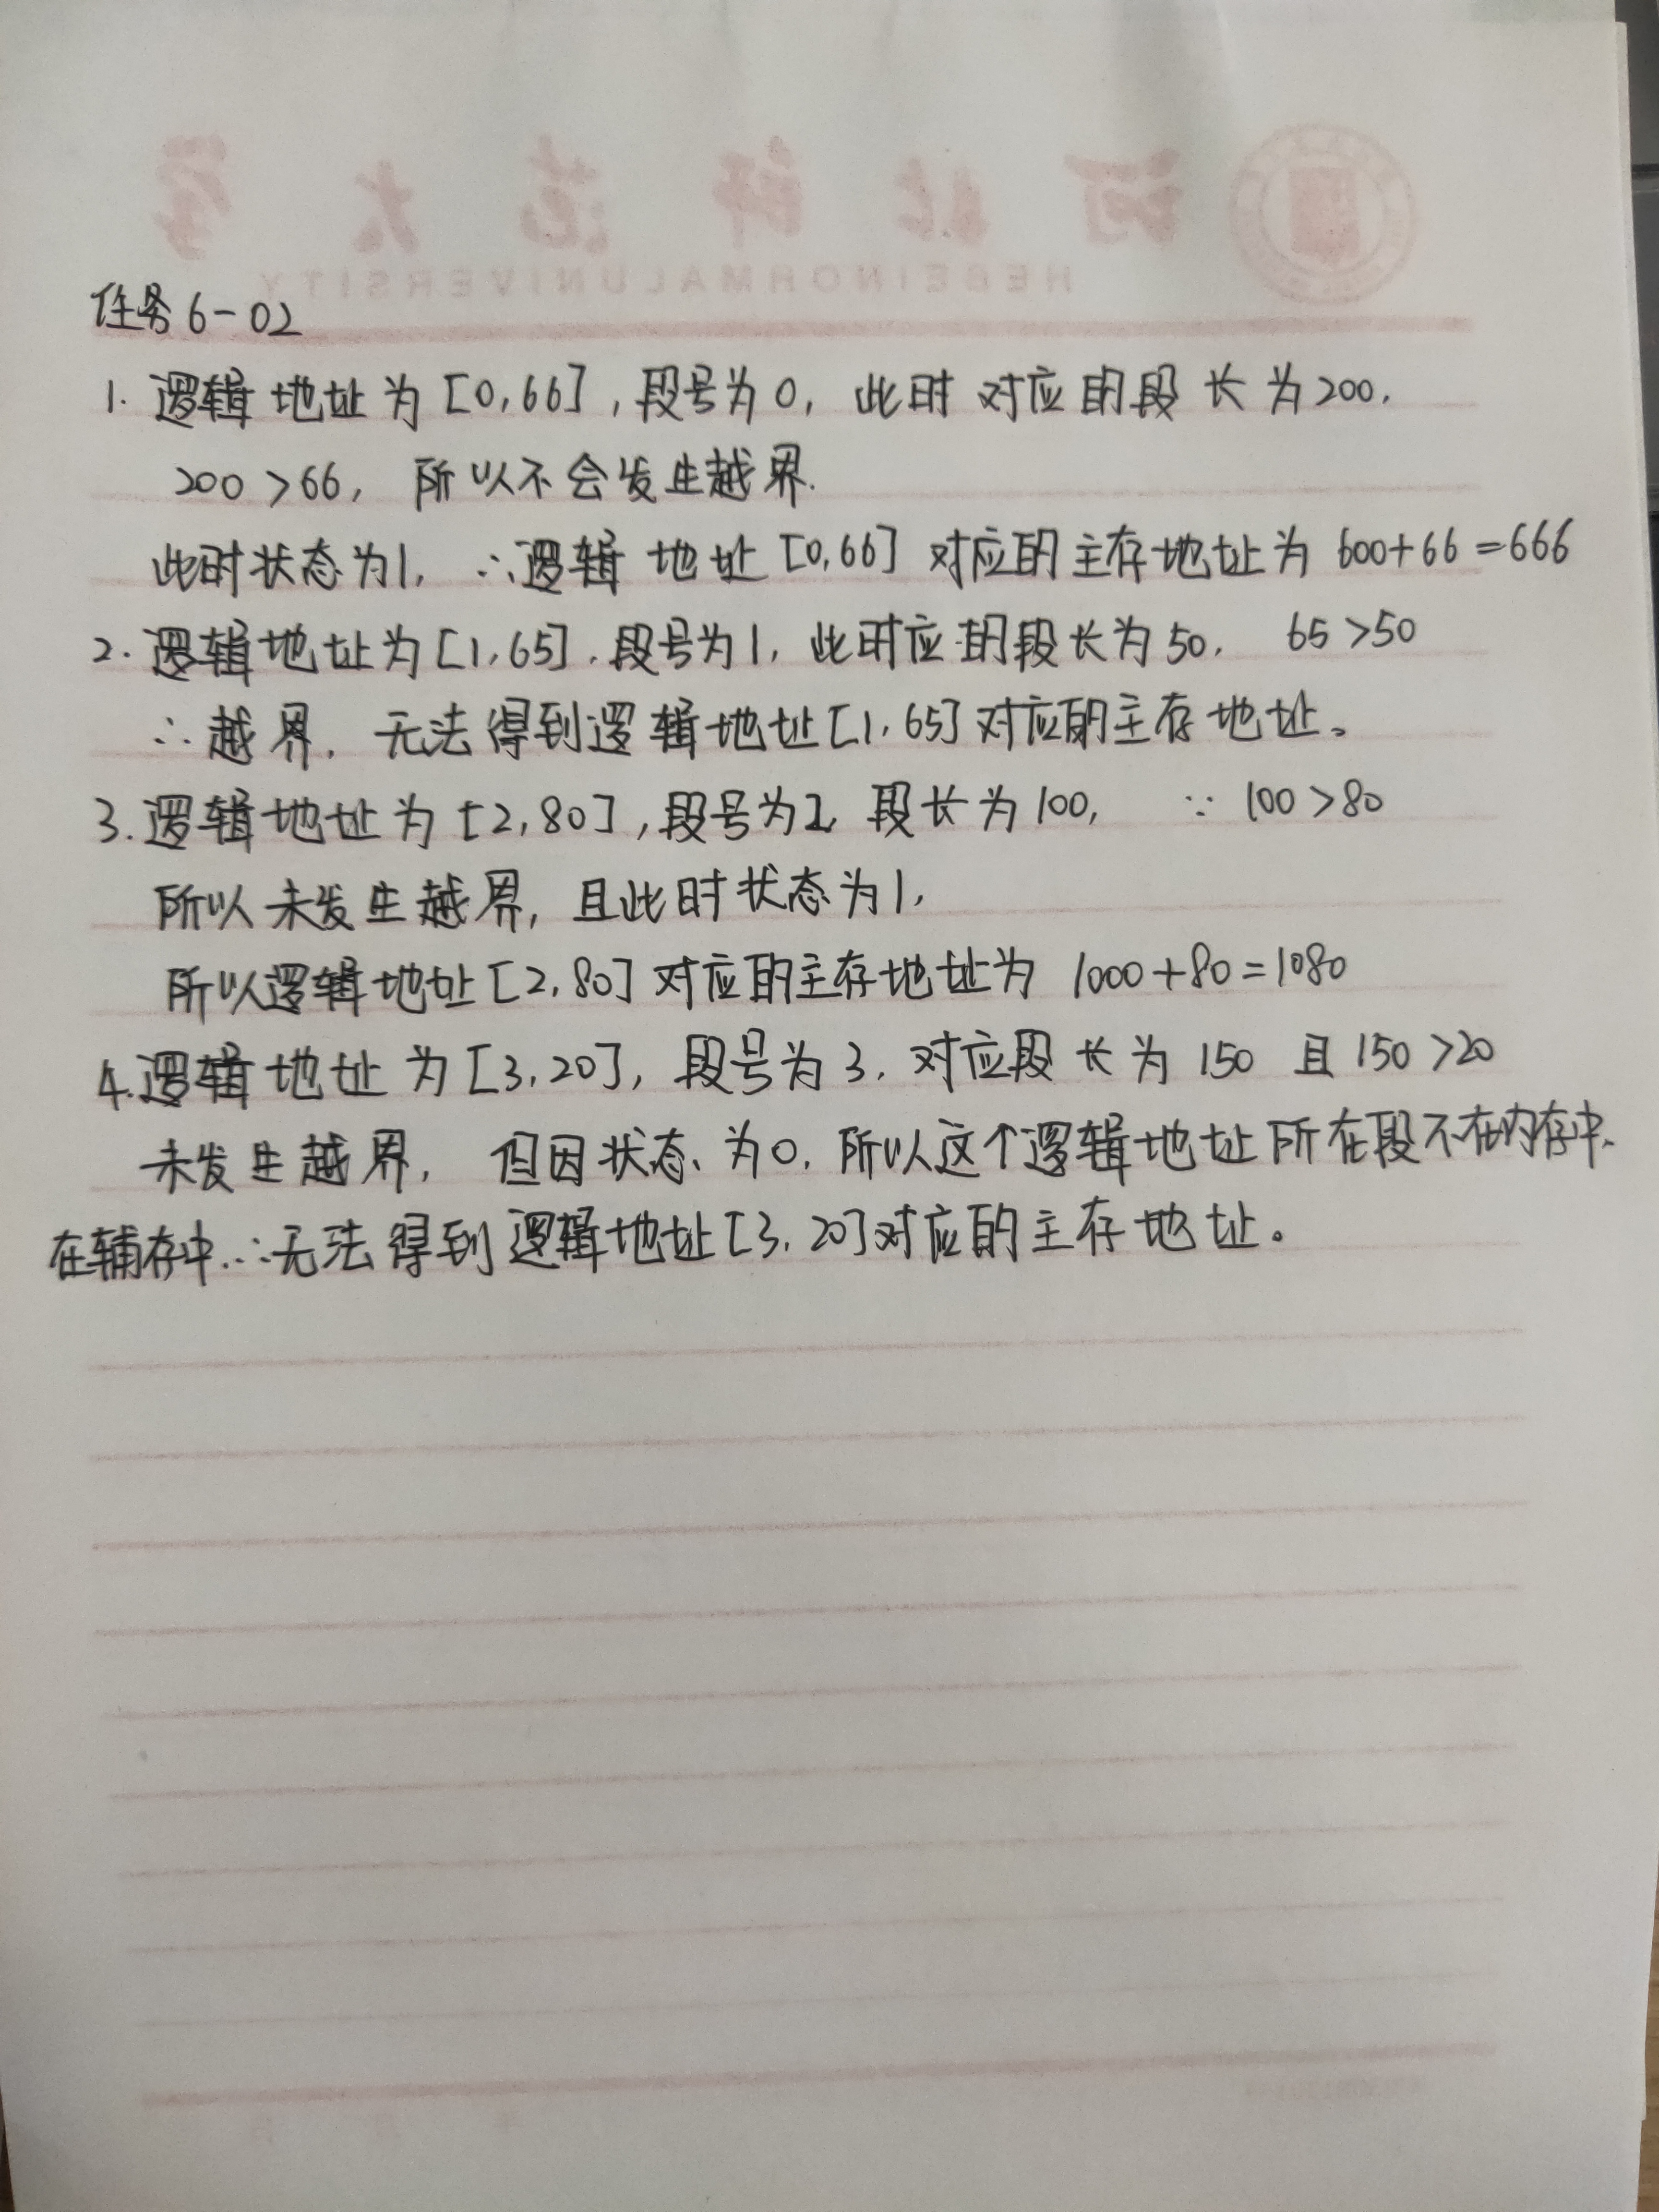 河北师范大学
HEBEI NORMAL UNIVERSITY
任务6-02
1. 逻辑地址为[0,66],段号为0, 此时对应的段长为200.
200>66, 所以不会发生越界.
此时状态为1, ∴逻辑地址[0,66]对应的主存地址为 600+66=666
2. 逻辑地址为[1,65].段号为1, 此时应的段长为50, 65>50
∴越界. 无法得到逻辑地址[1,65]对应的主存地址。
3. 逻辑地址为[2,80],段号为2, 段长为100, ∵ 100>80
所以未发生越界, 且此时状态为1,
所以逻辑地址[2,80]对应的主存地址为 1000+80=1080
4. 逻辑地址为[3,20], 段号为3, 对应段长为150 且150>20
未发生越界, 但因状态为0, 所以这个逻辑地址所在段不在内存中、
在辅存中.∴无法得到逻辑地址[3,20]对应的主存地址。